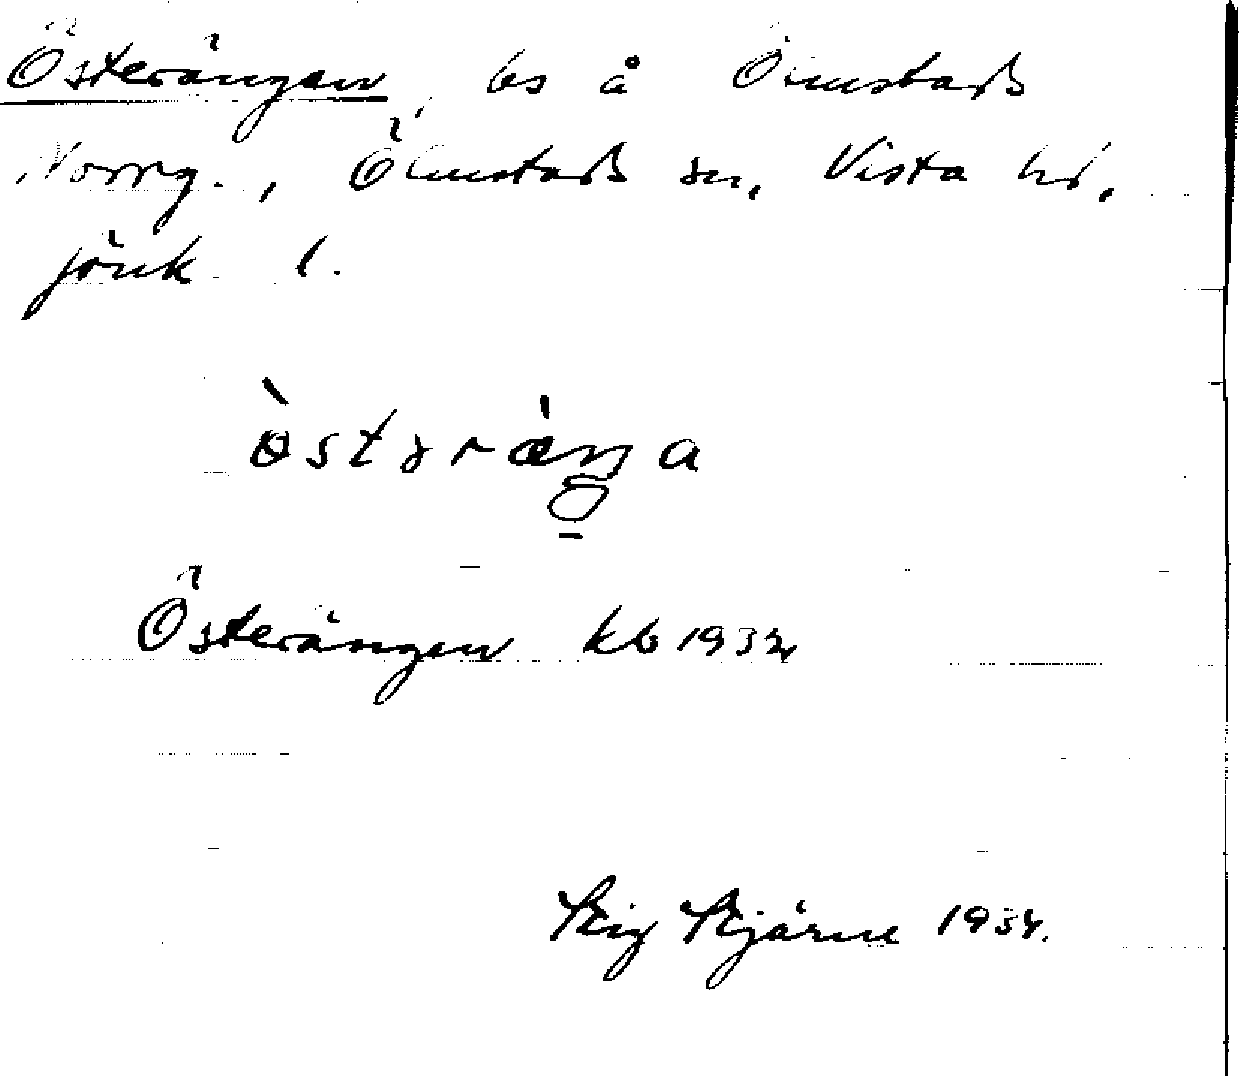 Österängen, bs å Ölmstads
Norrg., Ölmstads sn, Vista hd,
Jönk. l.
Österängen kb 1932
Stig Stjärne 1934.